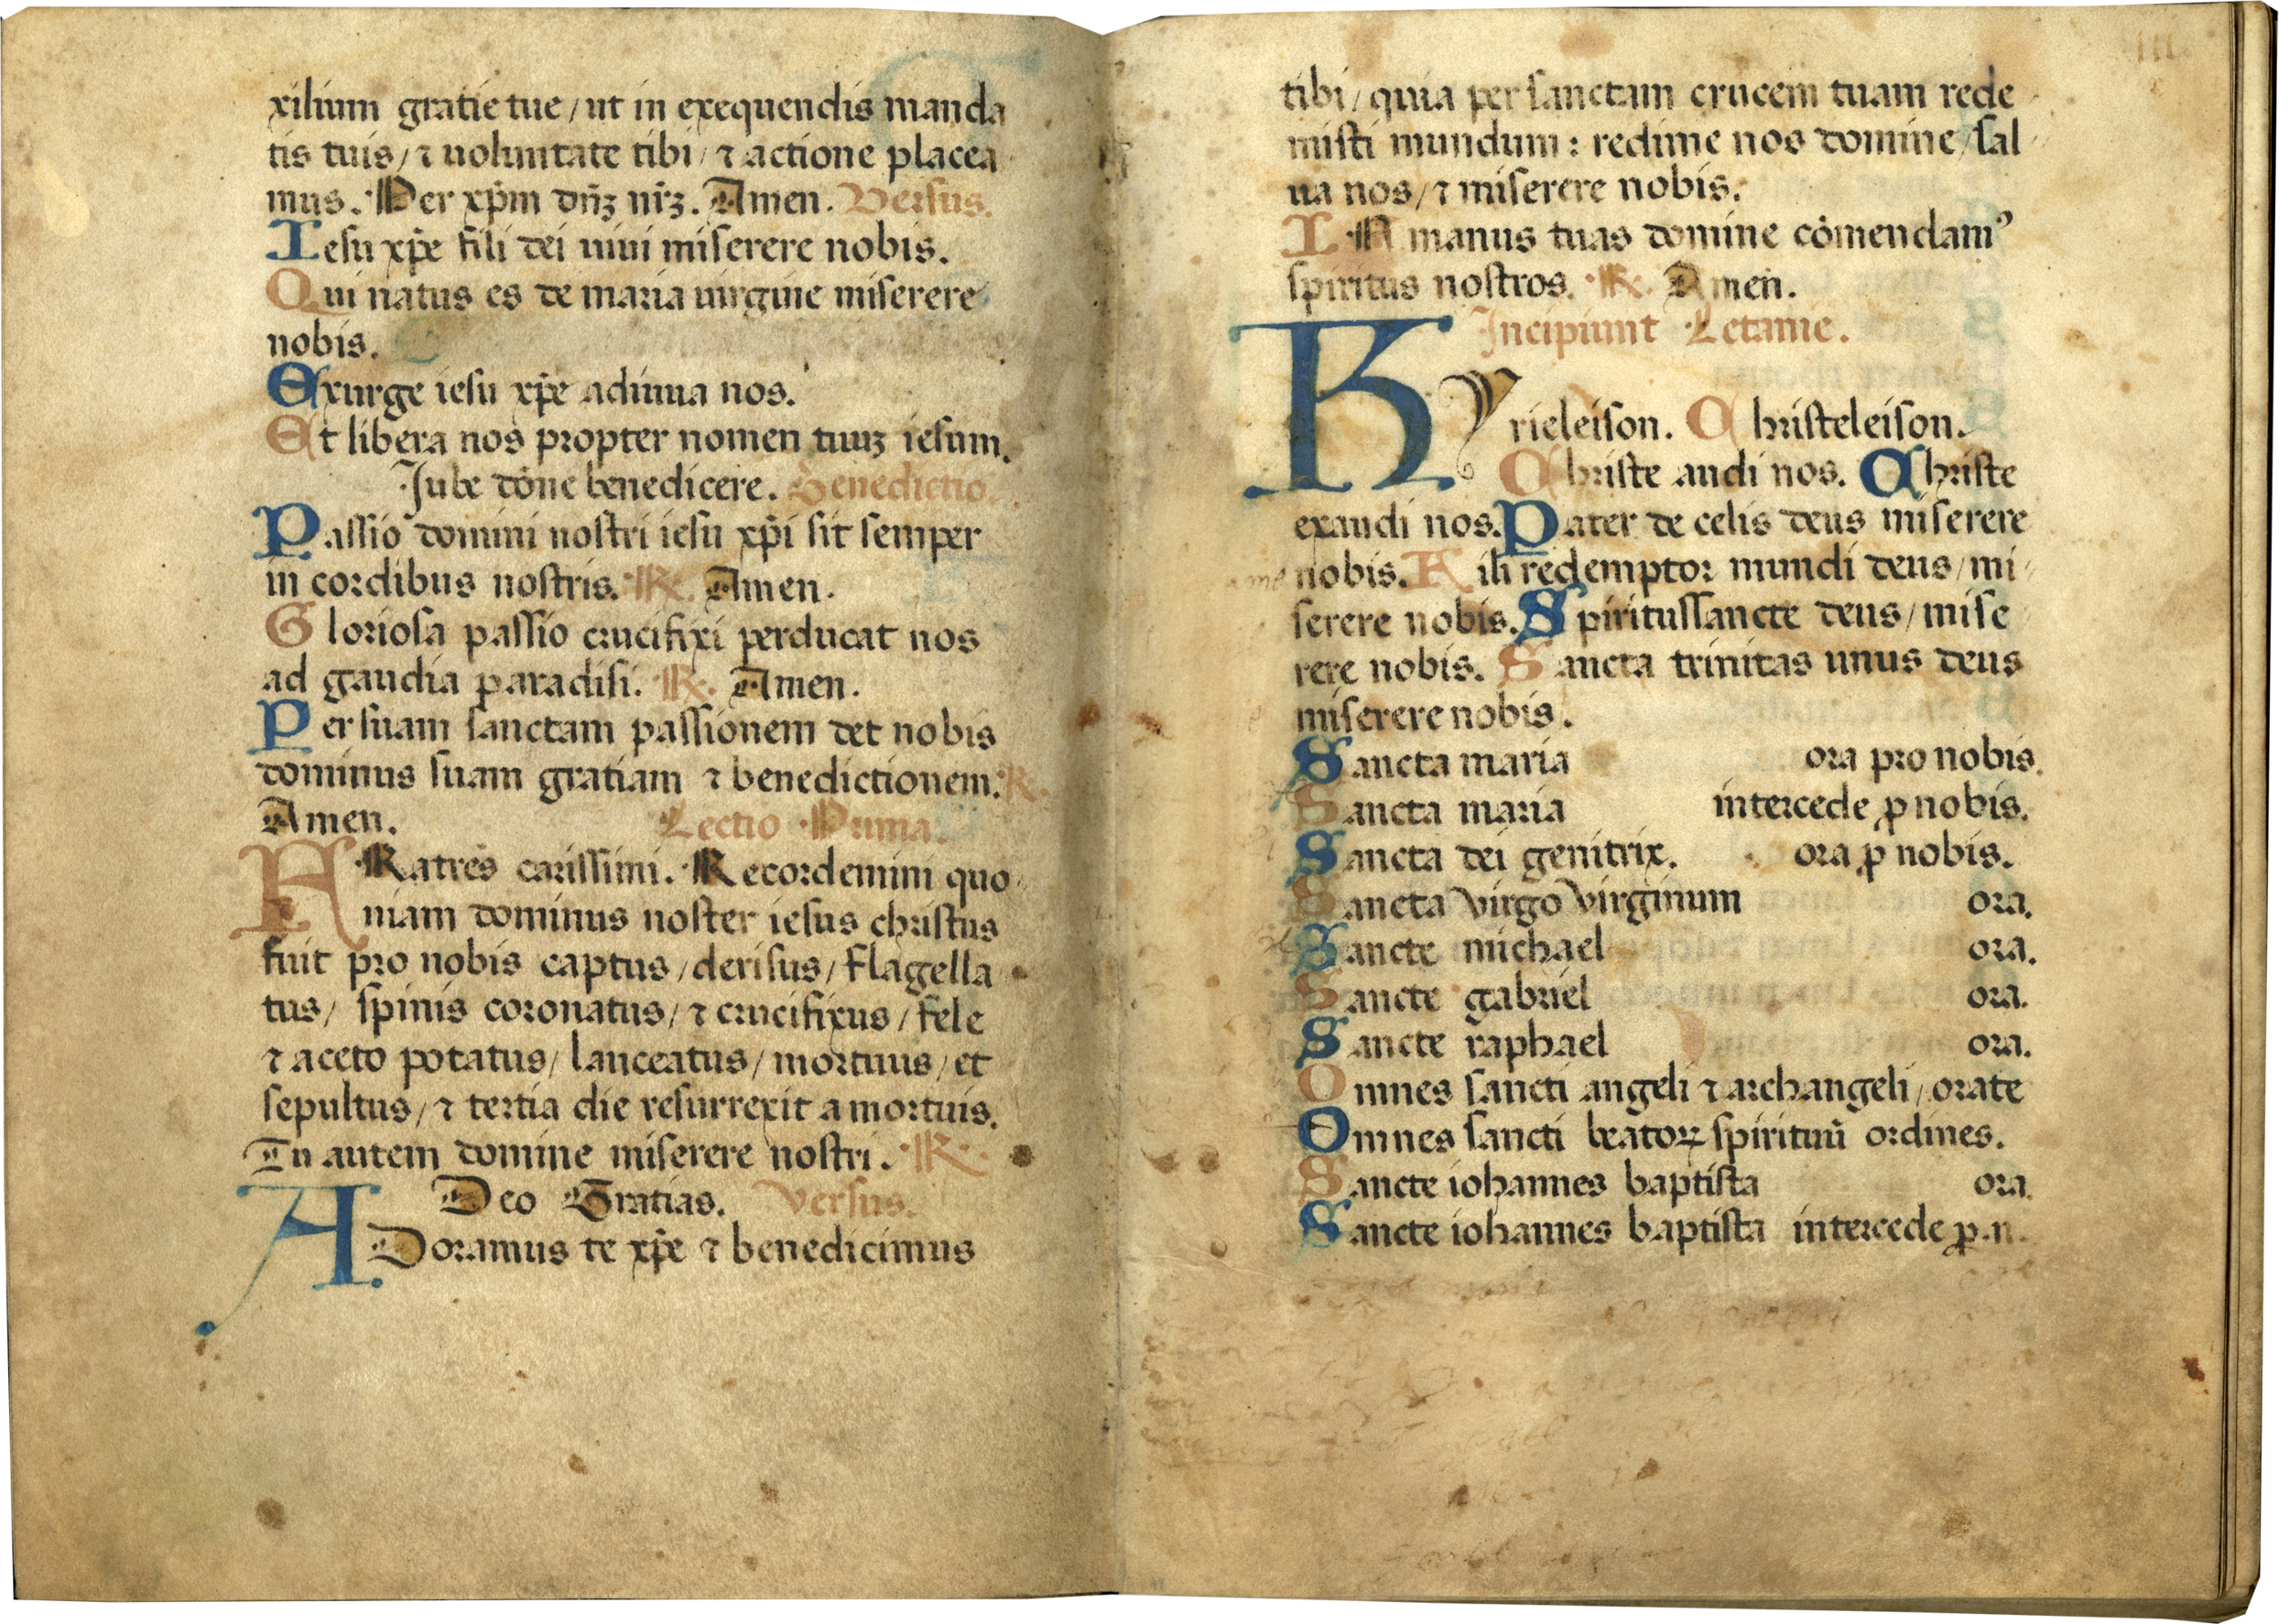 xilium gratie tue / ut in exequendis manda
tis tuis / ⁊ uoluntate tibi / ⁊ actione placea
mus. Per xp̄m dn̄ꝫ nr̄ꝫ. Amen. Versus.
Iesu xp̄e fili dei uiui miserere nobis.
Qui natus es de maria uirgine miserere
nobis.
Exurge iesu xp̄e adiuua nos.
Et libera nos propter nomen tuuꝫ iesum.
Iube dōne benedicere. Benedictio.
Passio domini nostri iesu xp̄i sit semper
in cordibus nostris. R. Amen.
Gloriosa passio crucifixi perducat nos
ad gaudia paradisi. R. Amen.
Per suam sanctam passionem det nobis
dominus suam gratiam ⁊ benedictionem. R.
Amen. Lectio Prima.
FRatres carissimi. Recordemini quo
niam dominus noster iesus christus
fuit pro nobis captus / derisus / flagella
tus / spinis coronatus / ⁊ crucifixus / fele
⁊ aceto potatus / lanceatus / mortuus / et
sepultus / ⁊ tertia die resurrexit a mortuis.
Tu autem domine miserere nostri. R.
Deo Gratias. Versus.
ADoramus te xp̄e ⁊ benedicimus
tibi / quia per sanctam crucem tuam rede
misti mundum : redime nos domine / sal
ua nos / ⁊ miserere nobis.
IN manus tuas domine cōmendamꝰ
spiritus nostros. R. Amen.
Incipiunt Letanie.
KYrieleison. Christeleison.
Christe audi nos. Christe
exaudi nos. Pater de celis deus miserere
nobis. Fili redemptor mundi deus / mi
serere nobis. Spiritussancte deus / mise
rere nobis. Sancta trinitas unus deus
miserere nobis.
Sancta maria ora pro nobis.
Sancta maria intercede ꝓ nobis.
Sancta dei genitrix. ora ꝓ nobis.
Sancta virgo virginum ora.
Sancte michael ora.
Sancte gabriel ora.
Sancte raphael ora.
Omnes sancti angeli ⁊ archangeli / orate
Omnes sancti beatoꝝ spirituū ordines.
Sancte iohannes baptista ora.
Sancte iohannes baptista intercede ꝓ.n.